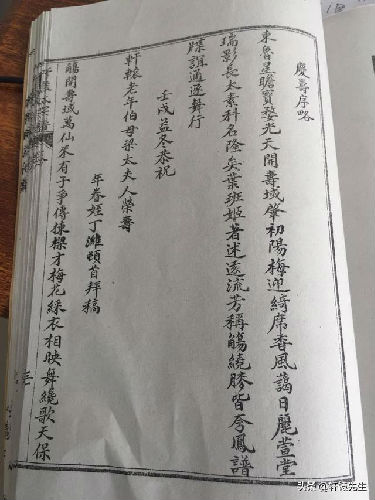 慶壽序略
東魯星瞻寶婺光天開壽域肇初陽梅迎綺席春風藹日麗萱堂
瑞影長太素科名隆矣葉班姬著述遠流芳稱觴繞膝皆夸鳳譜
牒誼通遂舞行
壬戌益冬恭祝
軒轅老年伯母梁太夫人榮壽
年眷姪丁濰頓首拜稿
觴開壽域萬仙來有子爭傳棟樑才梅花綵衣相映舞繞歌天保
头条@轩辕先生